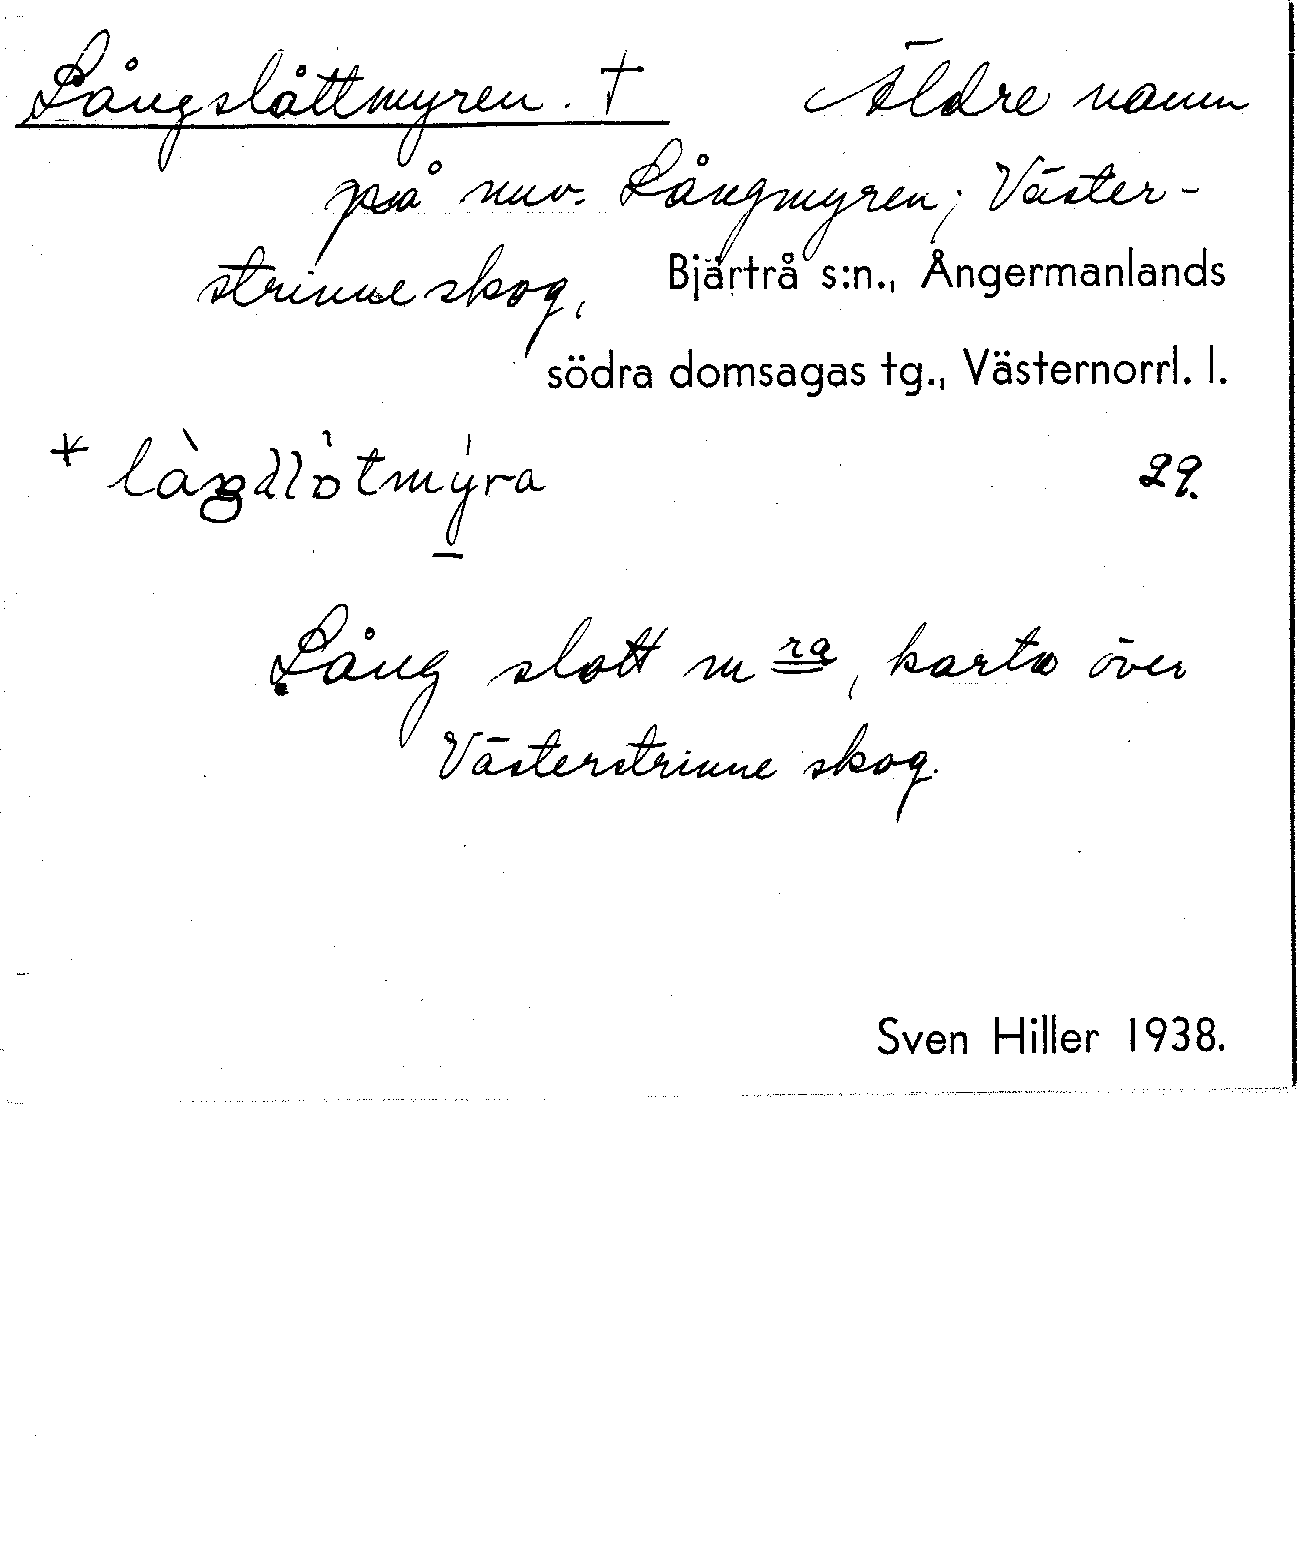 Långslåttmyren. † Äldre namn
på nuv. Långmyren; Väster-
strinne skog, Bjärtrå s:n., Ångermanlands
södra domsagas tg., Västernorrl. l.
29.
Lång slott m ra, karta över
Västerstrinne skog.
Sven Hiller 1938.